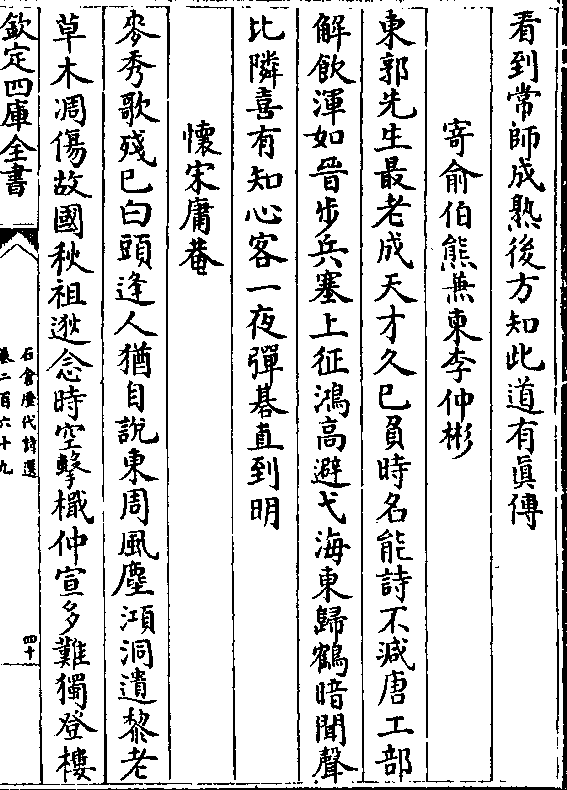 看到常師成熟後方知此道有眞傳
寄俞伯熊兼柬李仲彬
東郭先生最老成天才久已負時名能詩不減唐工部
解飲渾如晉步兵塞上征鴻高避弋海東歸鶴暗聞聲
比隣喜有知心客一夜彈碁直到明
懷宋庸菴
麥秀歌殘已白頭逢人猶自說東周風塵澒洞遺黎老
草木凋傷故國秋祖逖念時空擊檝仲宣多難獨登樓
欽定四庫全書
石倉歷代詩選
卷二百六十九
四十